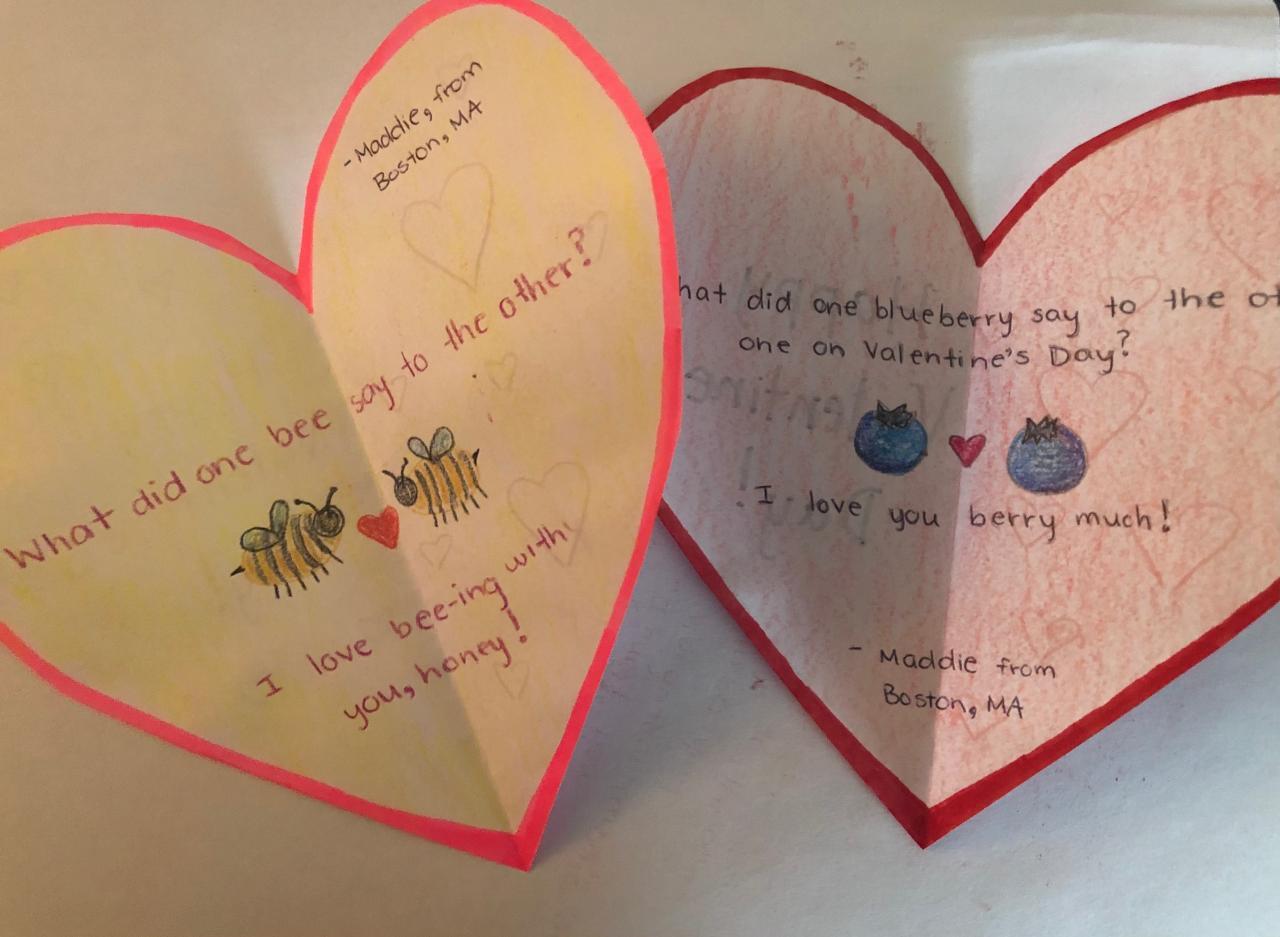 - Maddie, from
Boston, MA
What did one bee say to the other?
I love bee-ing with
you, honey!
hat did one blueberry say to the ot
one on Valentine's Day?
I love you berry much!
- Maddie from
Boston, MA
Happy
Valentine
Day!